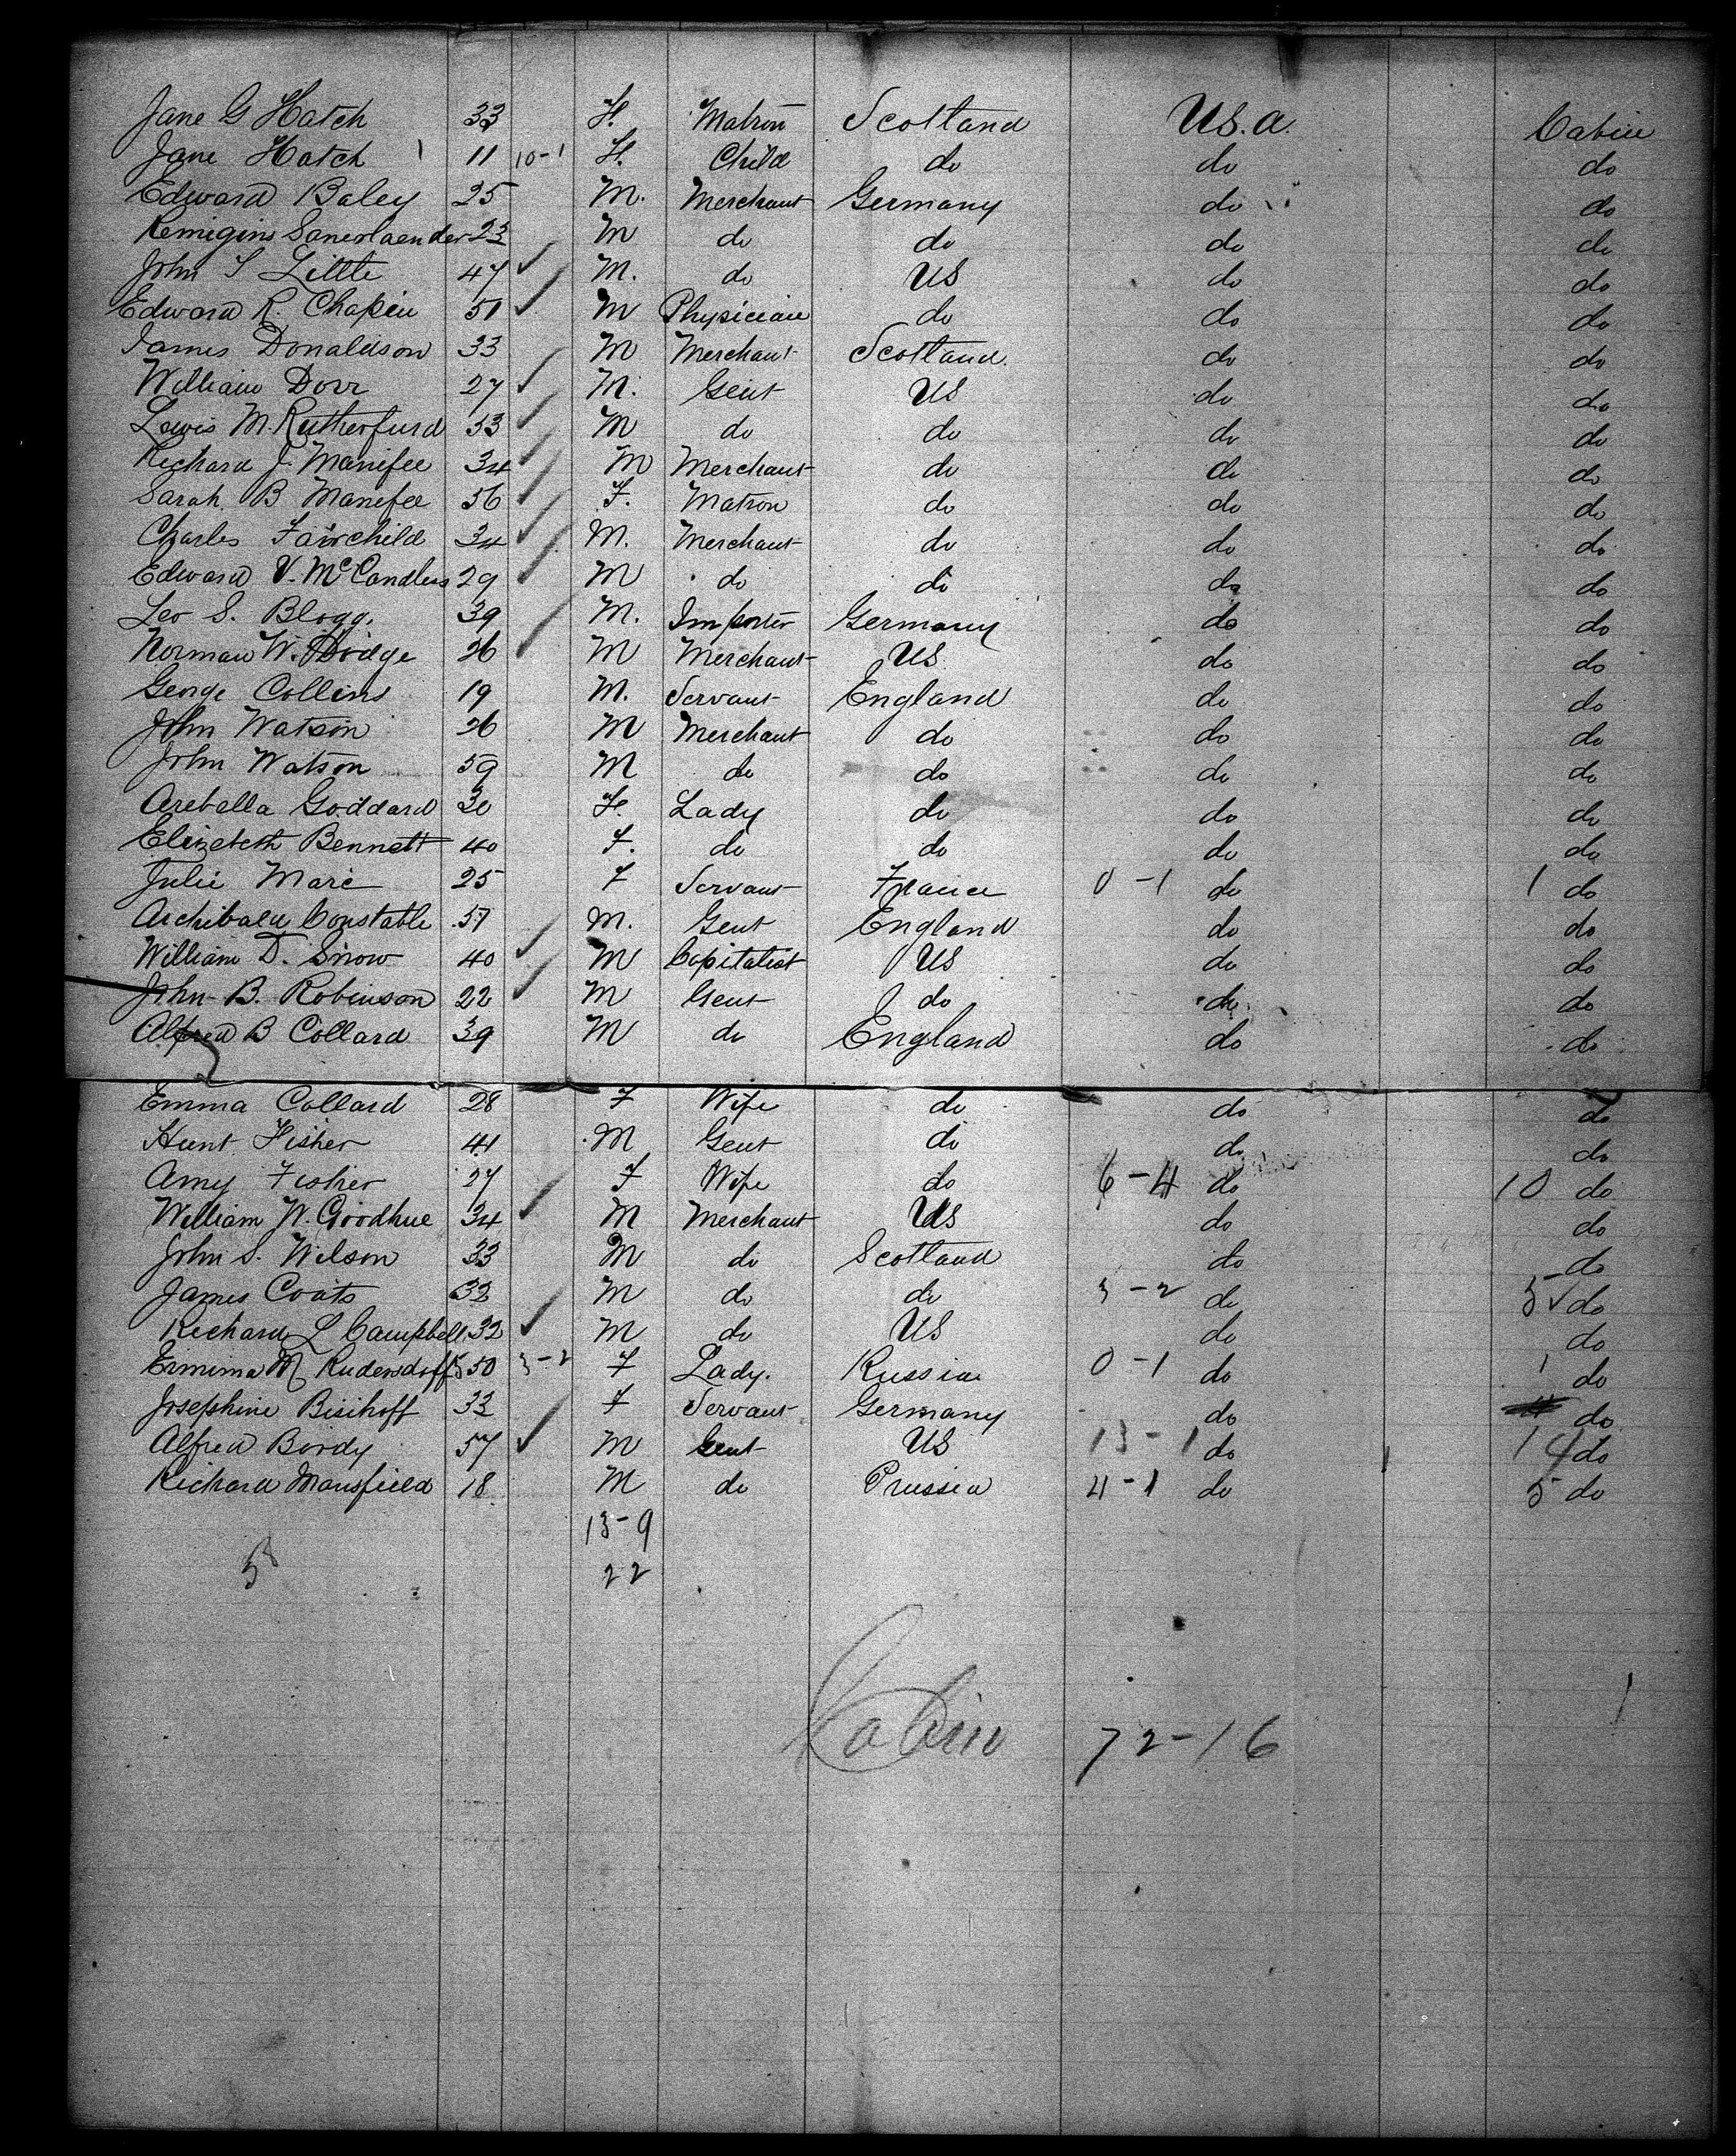 Jane G Hatch 33 F. Matron Scotland U.S.A. Cabin
Jane Hatch 11 10-1 F. Child do do do
Edward Baley 25 M. Merchant Germany do do
Remigins Sanerlaender 23 M do do do do
John S Little 47 ✓ M. do US do do
Edward R. Chapin 51 ✓ M Physician do do do
James Donaldson 33 M Merchant Scotland. do do
William Dorr 27 ✓ M. Gent US do do
Lewis M. Rutherfurd 53 ✓ M do do do do
Richard J. Manifee 34 ✓ M Merchant do do do
Sarah B Manefee 56 ✓ F. Matron do do do
Charles Fairchild 34 ✓ M. Merchant do do do
Edward V. McCandless 29 ✓ M do do do do
Leo S. Blogg. 39 M. Importer Germany do do
Norman W. Dodge 26 ✓ M Merchant US do do
George Collins 19 M. Servant England do do
John Watson 26 M Merchant do do do
John Watson 59 M do do do do
Arebella Goddard 30 F. Lady do do do
Elizebeth Bennett 40 F. do do do do
Julie Marie 25 F Servant France 0-1 do 1 do
Archibald Constable 57 M. Gent England do do
William D. Snow 40 ✓ M Capitalist US do do
John B. Robinson 22 ✓ M Gent do do do
Alfred B Collard 39 M do England do do
Emma Collard 28 F Wife do do do
Hunt Fisher 41 M Gent do do do
Amy Fisher 27 F Wife do 6-4 do 10 do
William W. Goodhue 34 ✓ M Merchant US do do
John S. Wilson 33 M do Scotland do do
James Coats 32 M do do 3-2 do 5 ✓ do
Richard L Campbell 32 ✓ M do US do do
Ermima M Rudersdorff 50 3-2 F Lady. Russia 0-1 do 1 do
Josephine Bischoff 33 F Servant Germany do do
Alfred Bordy 57 ✓ M Gent US 13-1 do 14 do
Richard Mansfield 18 M do Prussia 4-1 do 5 do
13-9
58 22
Cabin 72-16